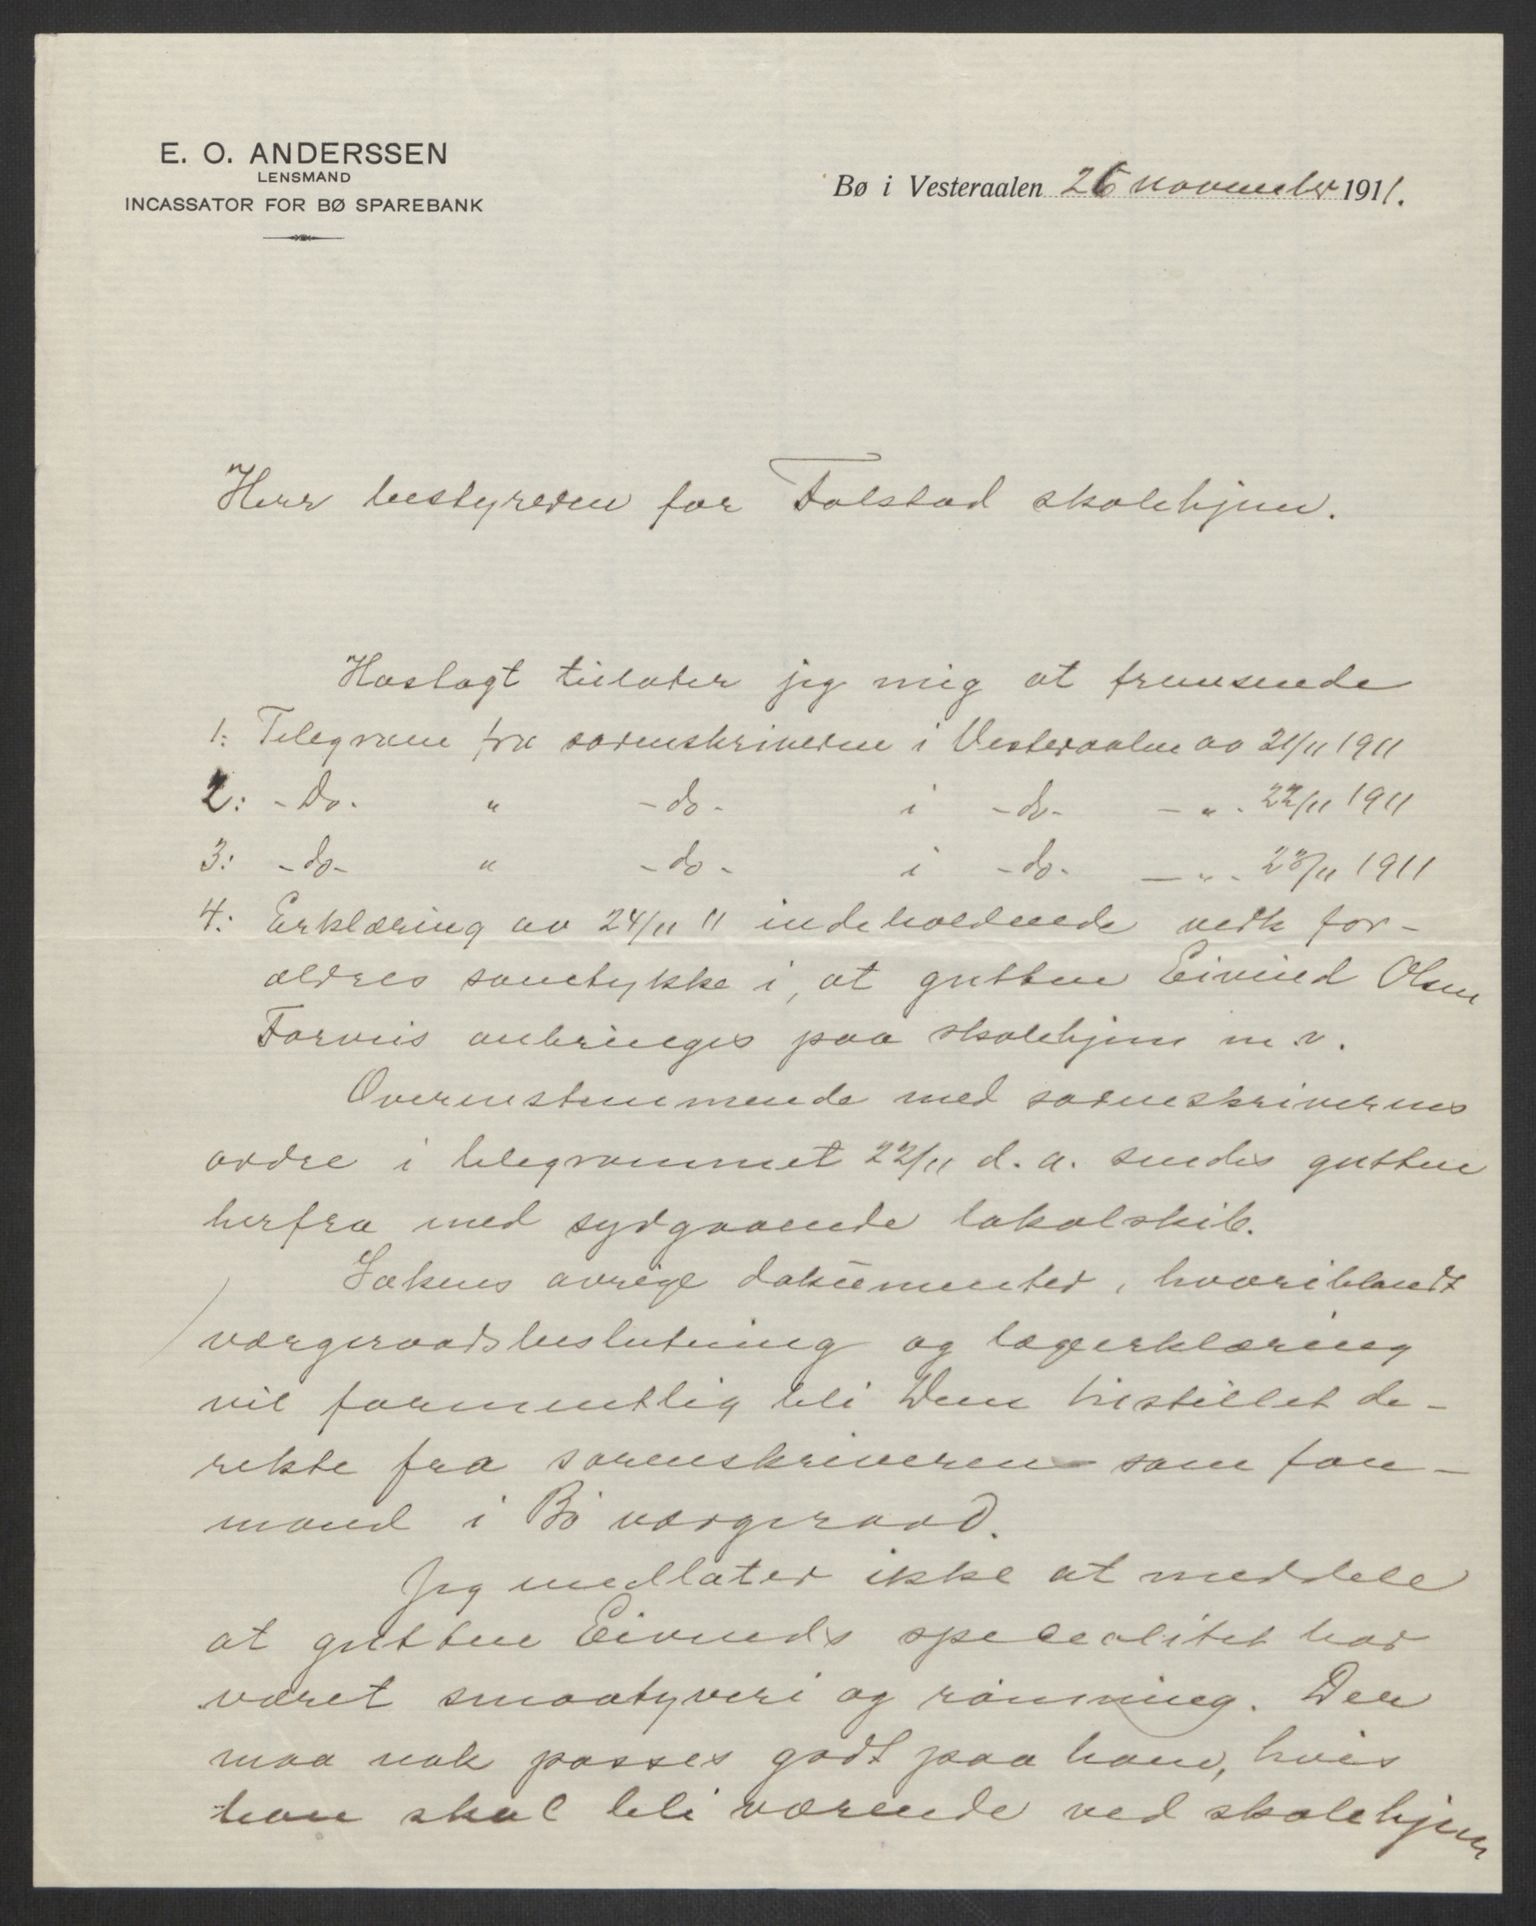 E. O. ANDERSSEN
LENSMAND
INCASSATOR FOR BØ SPAREBANK
Bø i Vesteraalen 26 november 1911.
Herr bestyreren for Falstad skolehjem.
Hoslagt tillater jeg mig at fremsende
1: Telegram fra sorenskriveren i Vesteraalen av 21/11 1911
2: -Do- " -do- i -do- -"- 22/11 1911
3: -do- " -do- i -do- -"- 23/11 1911
4: Erklæring av 24/11 11 indeholdende vedk for-
ældres samtykke i, at gutten Eivind Olsen
Forvis anbringes paa skolehjem m.v.
Overensstemmende med sorenskriverens
ordre i telegrammet 22/11 d. a. sendes gutten
herfra med sydgaaende lokalskib.
Sakens øvrige dokumenter, hvoriblandt
vergeraadsbeslutning og lægeerklæring
vil formentlig bli Dem tilstillet de-
rekte fra sorenskriveren som for-
mand i Bø vergeraad.
Jeg undlater ikke at meddele
at gutten Eivinds specialitet har
været smaatyveri og rømning. Der
maa nok passes godt paa ham, hvis
han skal bli værende ved skolehjem